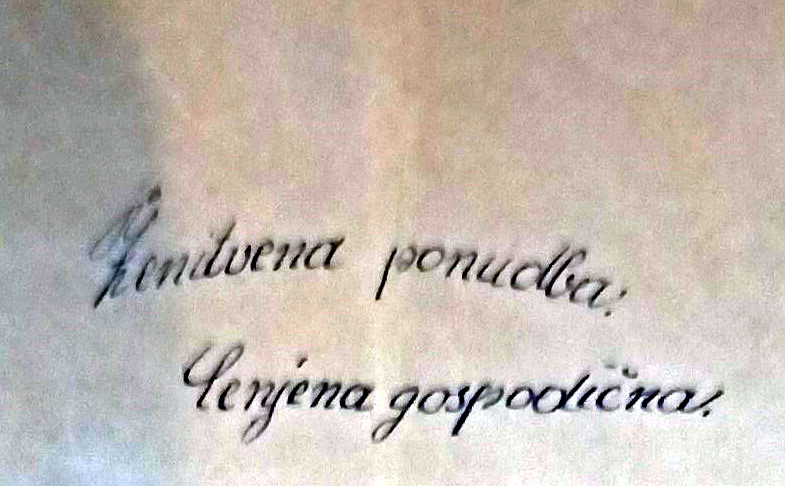 Ženitvena ponudba:
Cenjena gospodična!